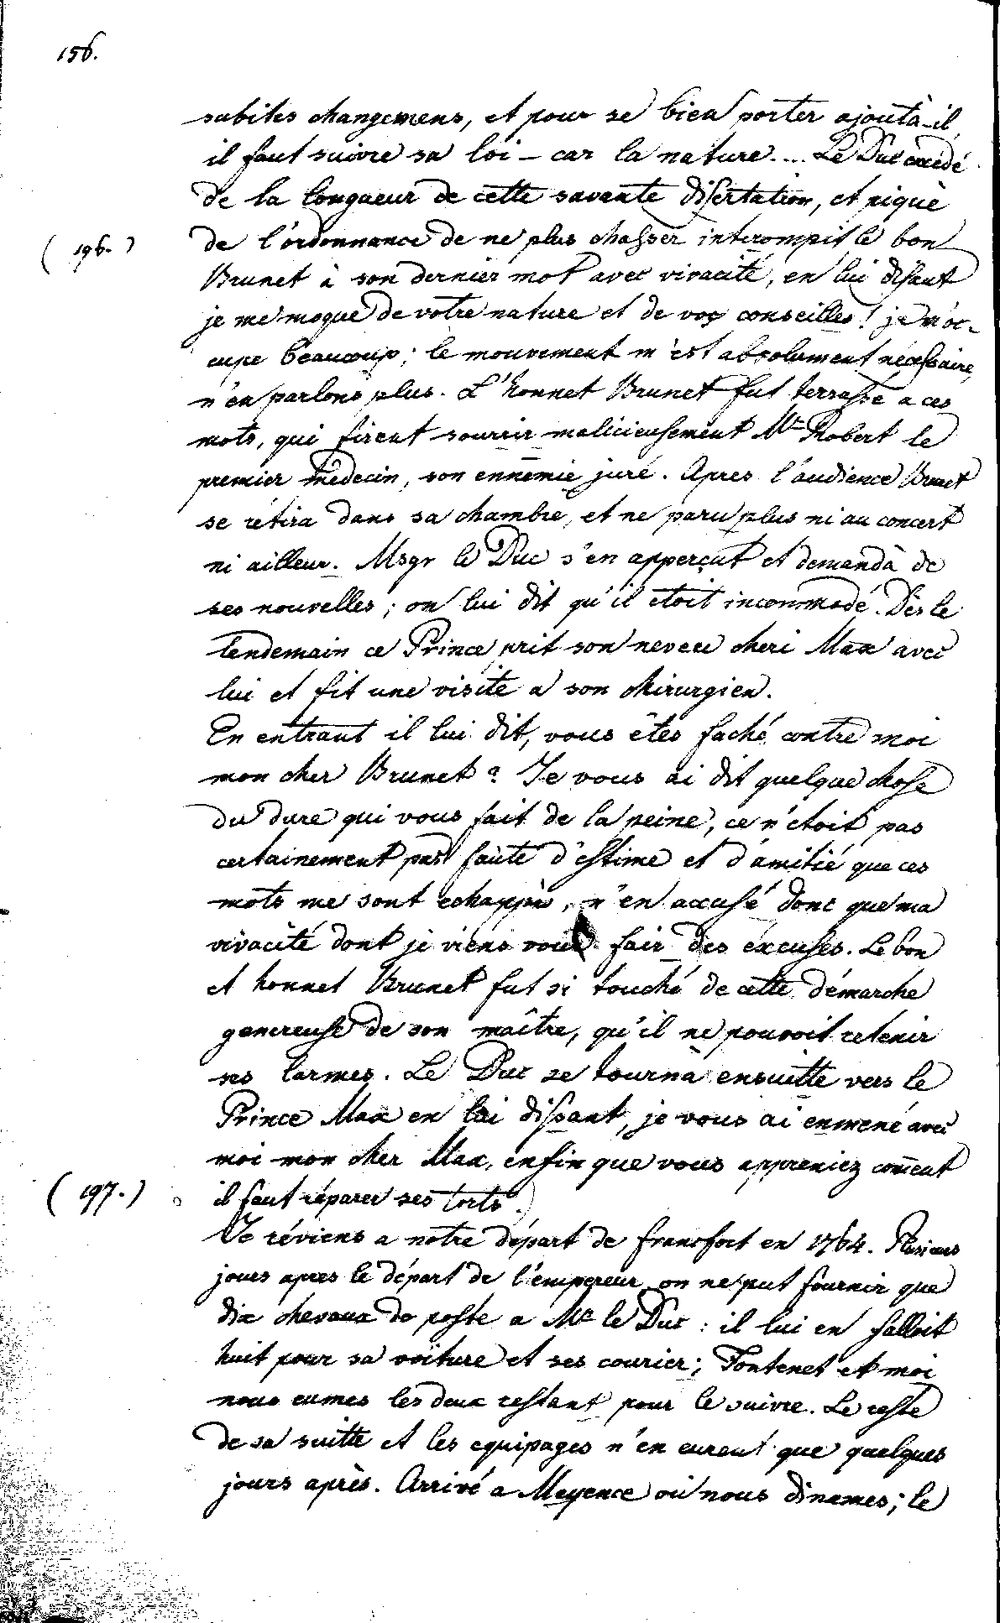 156.
subites changemens, et pour se bien porter ajouta-il,
il faut suivre sa loi – car la nature.... Le Duc excédé
de la longueur de cette savente disertation, et piqué
(196.) de l'ordonnance de ne plus chasser interompit le bon
Brunet à son dernier mot avec vivacité, en lui disant
je me moque de votre nature et de vos conseilles! je m'oc-
cupe beaucoup; le mouvement m'est absolument nécessaire,
n'en parlons plus. L'honnet Brunet fut terrassé a ces
mots, qui firent sourrir malicieusement Mr. Robert le
premier médecin, son ennemie juré. Apres l'audience Brunet
se rétira dans sa chambre, et ne paru plus ni au concert
ni ailleur. Msgr le Duc s'en apperçut et demandà de
ses nouvelles; on lui dit qu'il etoit incommodé. Dès le
lendemain ce Prince prit son neveu cheri Max avec
lui et fit une visite a son chirurgien.
En entrant il lui dit, vous êtes faché contre moi
mon cher Brunet? Je vous ai dit quelque chose
du dure qui vous fait de la peine, ce n'étoit pas
certainement pas faute d'estime et d'amitié que ces
mots me sont echappés, n'en accusé donc que ma
vivacité dont je viens vous fair des éxcuses. Le bon
et honnet Brunet fut si touché de cette démarche
genereuse de son maître, qu'il ne pouvoit retenir
ses larmes. Le Duc se tournà ensuitte vers le
Prince Max en lui dissant, je vous ai enmené avec
moi mon cher Max, enfin que vous appreniez coment
(197.) il faut réparer ses torts.
Je réviens a notre départ de francfort en 1764. Plusieurs
jours apres le départ de l'empereur on ne put fournir que
dix chevaux de poste a Mr. le Duc: il lui en falloit
huit pour sa voiture et ses courier; Fontenet et moi
nous eumes les deux restant pour le suivre. Le reste
de sa suitte et les equipages n'en eurent que quelques
jours après. Arrivé a Mayence où nous dinames; le